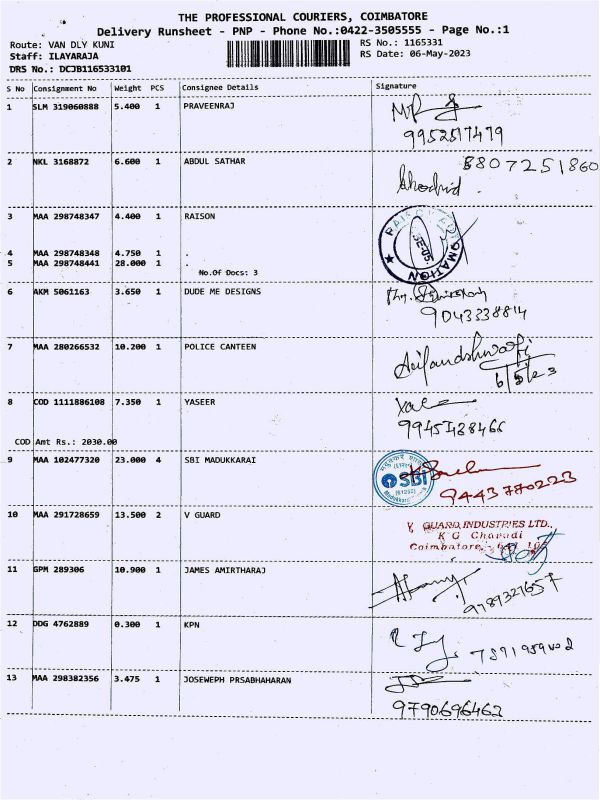 THE PROFESSIONAL COURIERS, COIMBATORE
Delivery Runsheet - PNP - Phone No.:0422-3505555 - Page No.:1
Route: VAN DLY KUNI RS No.: 1165331
Staff: ILAYARAJA RS Date: 06-May-2023
DRS No.: DCJB116533101
S No Consignment No Weight PCS Consignee Details Signature
1 SLM 319060888 5.400 1 PRAVEENRAJ
9952517479
2 NKL 3168872 6.600 1 ABDUL SATHAR 8807251860
3 MAA 298748347 4.400 1 RAISON
4 MAA 298748348 4.750 1 .
5 MAA 298748441 28.000 1 .
No.Of Docs: 3
6 AKM 5061163 3.650 1 DUDE ME DESIGNS
9043338814
7 MAA 280266532 10.200 1 POLICE CANTEEN
6/5/23
8 COD 1111886108 7.350 1 YASEER
9945438466
COD Amt Rs.: 2030.00
9 MAA 102477320 23.000 4 SBI MADUKKARAI
SBI
9443780223
10 MAA 291728659 13.500 2 V GUARD
V. GUARD INDUSTRIES LTD.,
K G Chavadi
Coimbatore
11 GPM 289306 10.900 1 JAMES AMIRTHARAJ
9789321657
12 DDG 4762889 0.300 1 KPN
13 MAA 298382356 3.475 1 JOSEWEPH PRSABHAHARAN
9790696463